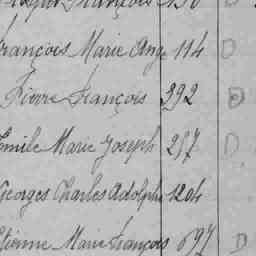 François 150 D
François Marie Ange 114 D
Pierre François 392 D
Emile Marie Joseph 257 D
Georges Charles Adolphe 1204
Etienne Marie François 697 D